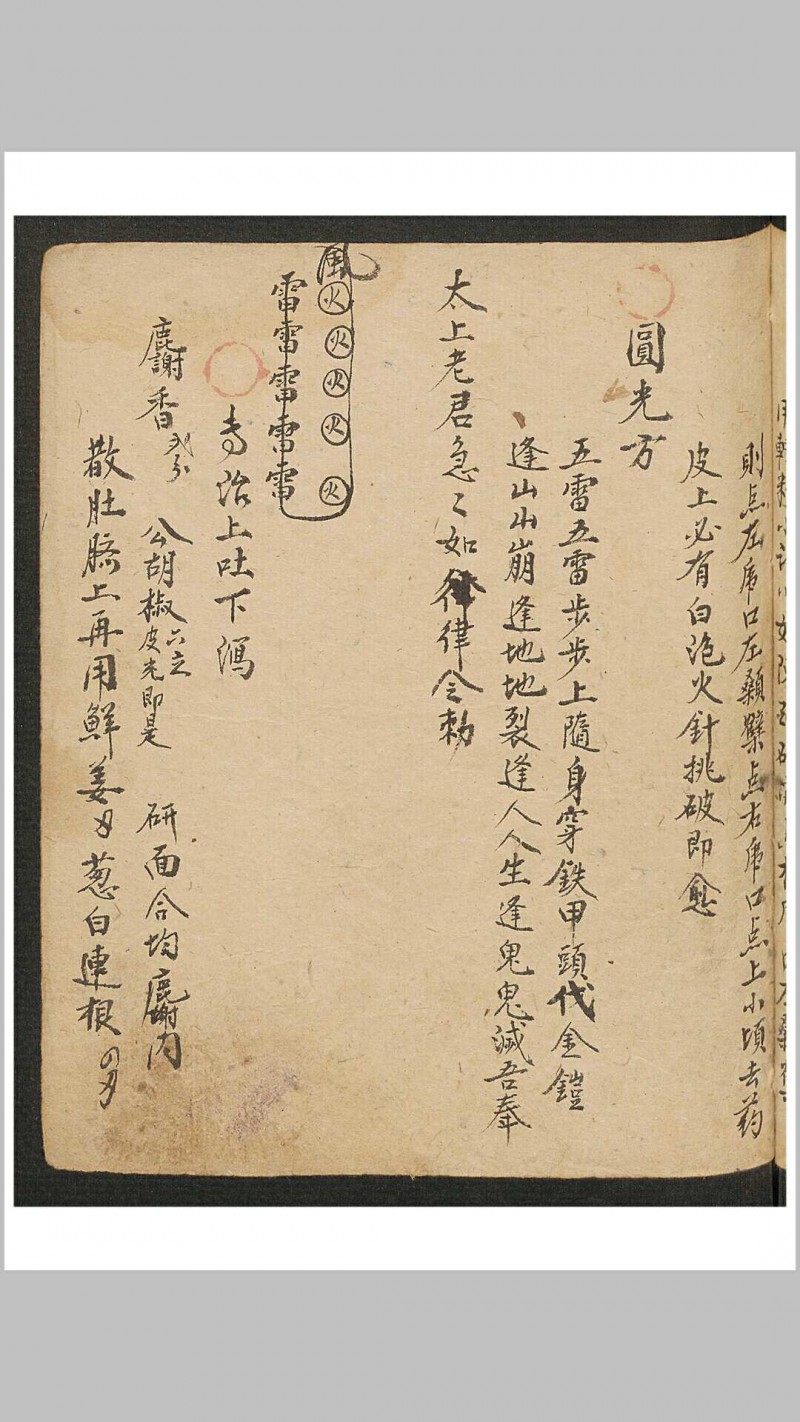 則点左虎口左顙擘点右虎口点上小頃去葯
皮上必有白泡火針挑破即愈
圓光方
五雷五雷步步上隨身穿鉄甲頭代金鎧
逢山山崩逢地地裂逢人人生逢鬼鬼滅吾奉
太上老君急〻如律令勅
風
火火火火火
雷雷雷雷雷
専治上吐下瀉
麝香 公胡椒六立皮光即是 研面合均麝內
散肚臍上再用鮮姜 葱白連根